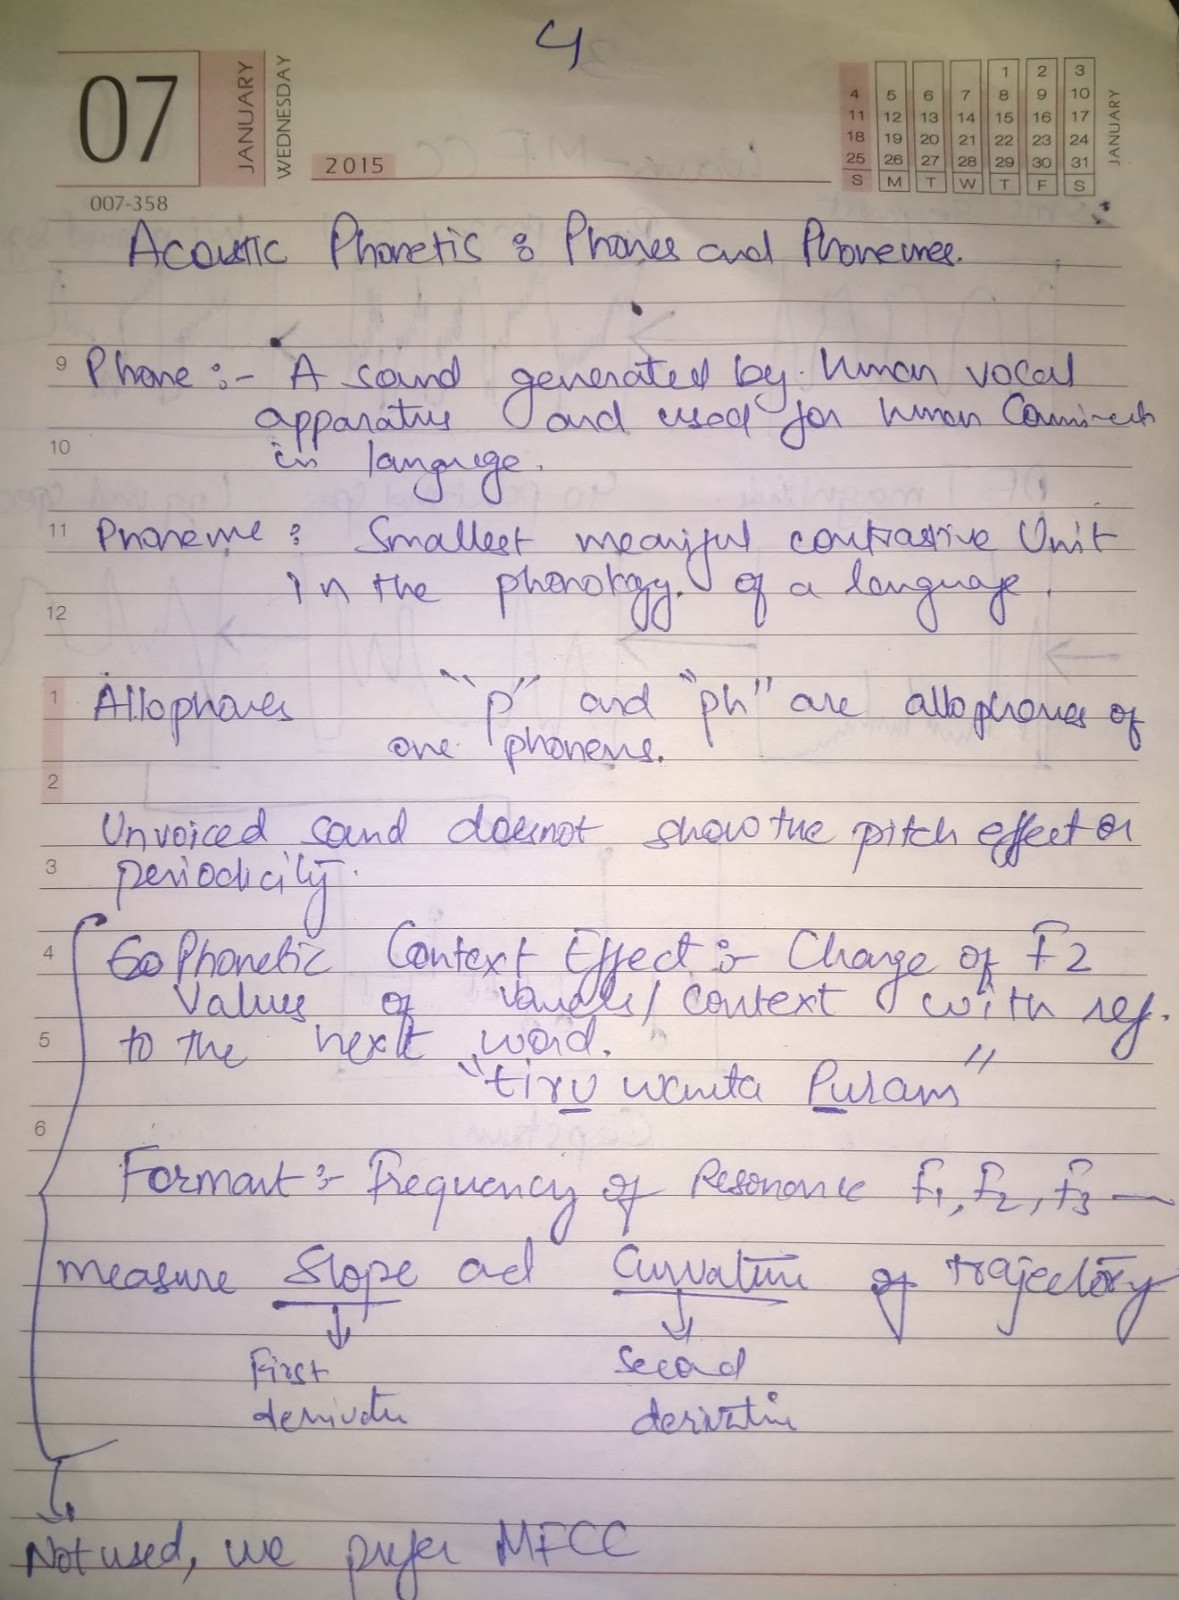 4
07
JANUARY
WEDNESDAY
007-358
2015
1 2 3
4 5 6 7 8 9 10
11 12 13 14 15 16 17
18 19 20 21 22 23 24
25 26 27 28 29 30 31
S M T W T F S
JANUARY
Acoustic Phonetis : Phones and Phonemes.
9 Phone :- A sound generated by human vocal
apparatus and used for human
10 in language.
11 Phoneme : Smallest meanigful contrastive Unit
in the phonology. of a language.
12
1 Allophones "p" and "ph" are allophones of
one phonems.
2
Unvoiced sound doesnot show the pitch effect or
3 periodicity.
4 Phonetic Context Effect :- Change of F2
Values of vowels/context with ref.
5 to the next word.
"tiru wanta Puram"
6
Formant :- Frequency of Resonance f1, f2, f3 —
measure Slope ad Curvature of trajectory
First Second
derivative
Not used, we prefer MFCC